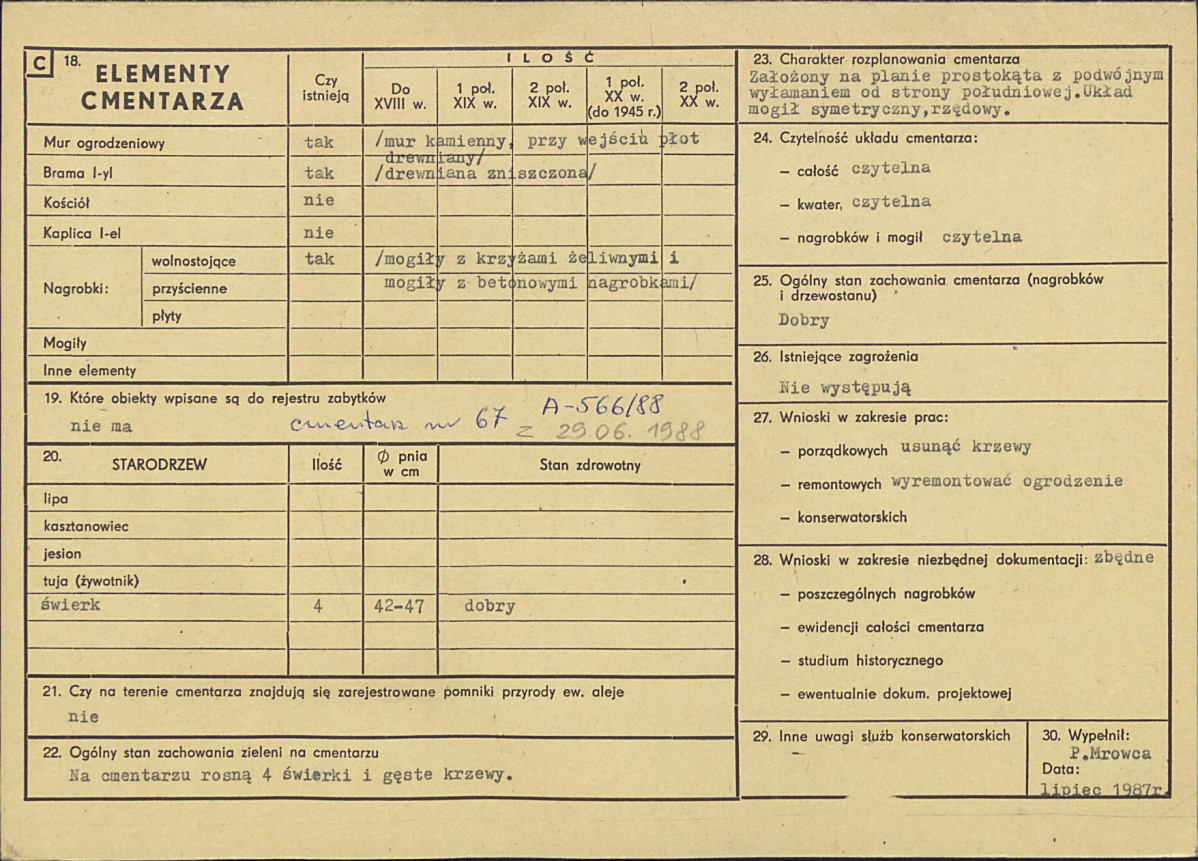 C 18. ELEMENTY CMENTARZA
Czy istnieją
ILOŚĆ
Do XVIII w.
1 poł. XIX w.
2 poł. XIX w.
1 poł. XX w. (do 1945 r.)
2 poł. XX w.
Mur ogrodzeniowy tak /mur kamienny, przy wejściu płot
drewniany/
Brama I-yl tak /drewniana zniszczona/
Kościół nie
Kaplica I-el nie
Nagrobki:
wolnostojące tak /mogiły z krzyżami żeliwnymi i
przyścienne mogiły z betonowymi nagrobkami/
płyty
Mogiły
Inne elementy
19. Które obiekty wpisane są do rejestru zabytków
nie ma cmentarz nr 67 A-566/88
z 29.06.1988
20. STARODRZEW Ilość Ø pnia w cm Stan zdrowotny
lipa
kasztanowiec
jesion
tuja (żywotnik)
świerk 4 42-47 dobry
21. Czy na terenie cmentarza znajdują się zarejestrowane pomniki przyrody ew. aleje
nie
22. Ogólny stan zachowania zieleni na cmentarzu
Na cmentarzu rosną 4 świerki i gęste krzewy.
23. Charakter rozplanowania cmentarza
Założony na planie prostokąta z podwójnym
wyłamaniem od strony południowej.Układ
mogił symetryczny,rzędowy.
24. Czytelność układu cmentarza:
– całość czytelna
– kwater, czytelna
– nagrobków i mogił czytelna
25. Ogólny stan zachowania cmentarza (nagrobków
i drzewostanu)
Dobry
26. Istniejące zagrożenia
Nie występują
27. Wnioski w zakresie prac:
– porządkowych usunąć krzewy
– remontowych wyremontować ogrodzenie
– konserwatorskich
28. Wnioski w zakresie niezbędnej dokumentacji: zbędne
– poszczególnych nagrobków
– ewidencji całości cmentarza
– studium historycznego
– ewentualnie dokum. projektowej
29. Inne uwagi służb konserwatorskich
–
30. Wypełnił:
P.Mrowca
Data:
lipiec 1987r.